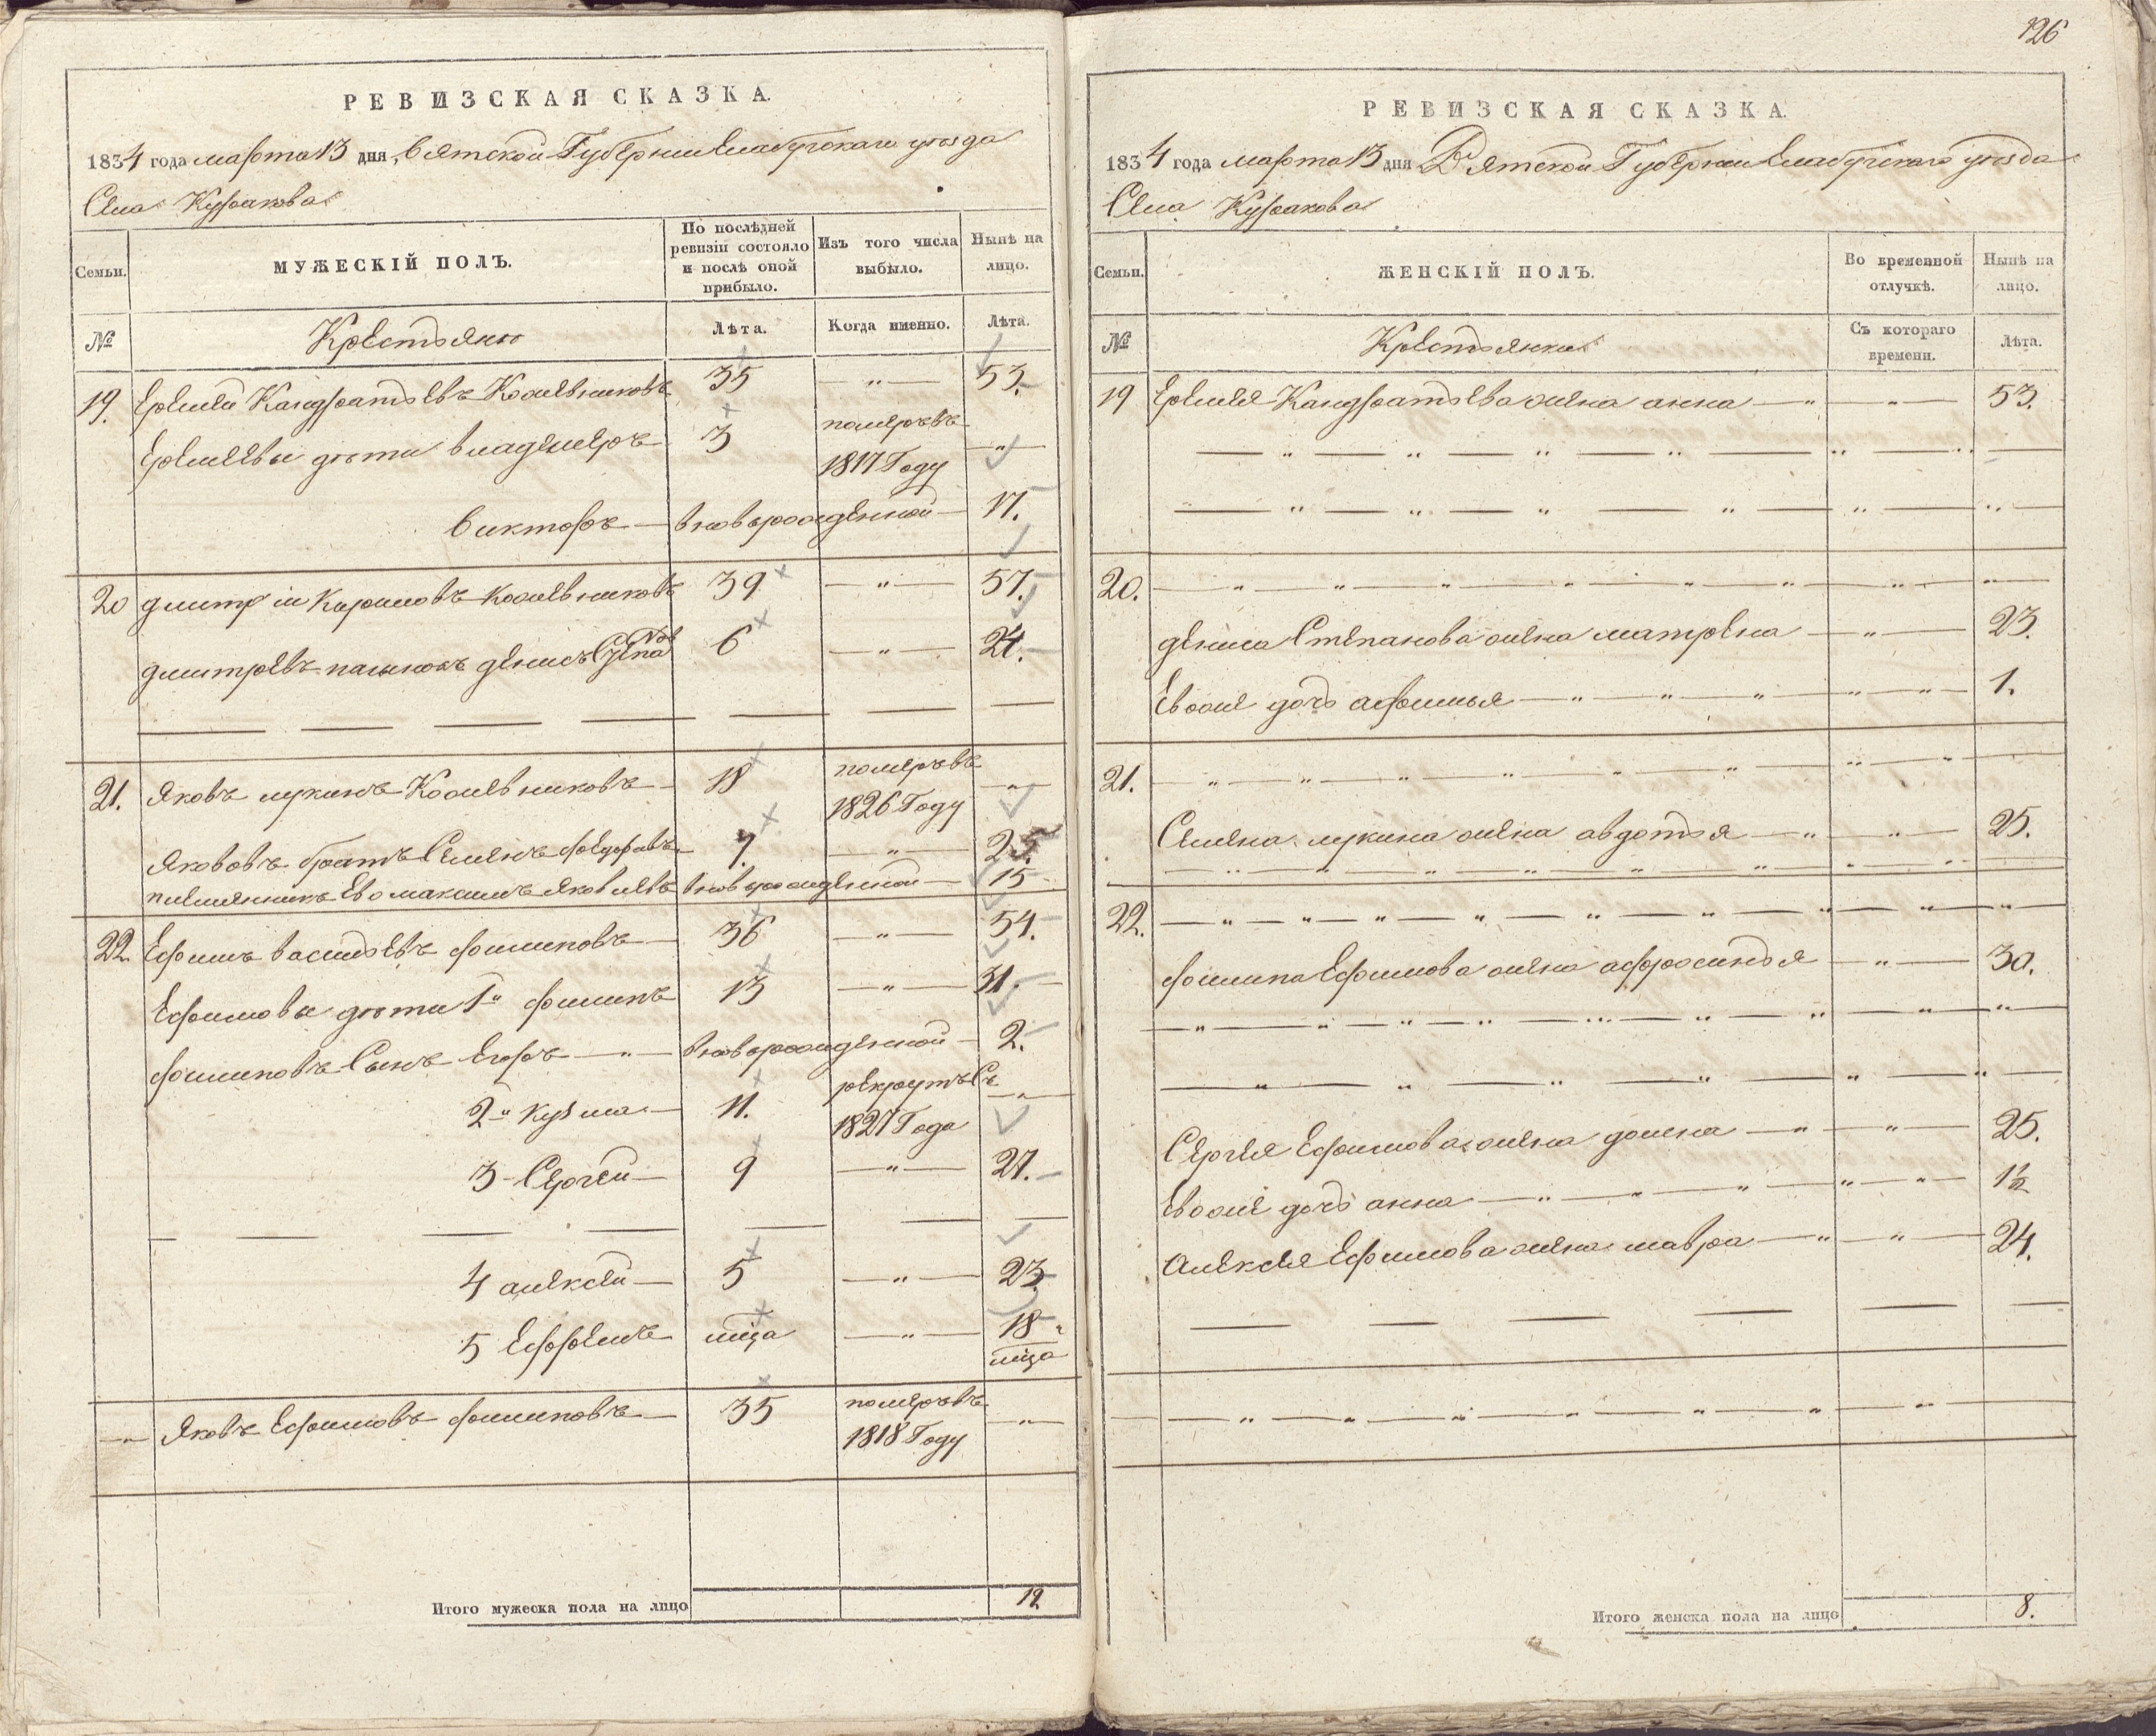 РЕВИЗСКАЯ СКАЗКА.
1834 года марта 13 дня, Вятской Губернии Елабугскаго уезда
Села Куракова
Семьи.
МУЖЕСКІЙ ПОЛЪ.
По послѣдней ревизіи состояло и послѣ оной прибыло.
Изъ того числа выбыло.
Нынѣ на лицо.
№
Крестьяне
Лѣта.
Когда именно.
Лѣта.
19. Еремей Кандратьевъ Кожевниковъ 35 — „ — 53.
Еремеевы дѣти владимеръ 3 померъ въ 1817 Году — „ —
Викторъ — вновьрожденной — 17.
20 дмитрій Карповъ Кожевниковъ 39 — „ — 57.
дмитрѣевъ пасынокъ денисъ Степановъ 6 — „ — 24.
21. Яковъ лукинъ Кожевниковъ 18 померъ въ 1826 Году — „ —
Якововъ братъ Семенъ федоровъ 7. — „ — 25.
племянникъ Ево максимъ Яковлевъ вновьрожденной — 15
22 Ефимъ васильевъ филиповъ 36 — „ — 54.
Ефимовы дѣти 1й филипъ 13 — „ — 31.
филиповъ Сынъ Егоръ — „ — вновьрожденной 2.
2й кузма 11. рекрутъ Съ 1827 Года — „ —
3 Сергей 9 — „ — 27.
4 алексей 5 — „ — 23.
5 Ефремъ мца — „ — 18 мца
— „ — Яковъ Ефимовъ филиповъ 35 померъ въ 1818 Году — „ —
Итого мужеска пола на лицо 12
126
РЕВИЗСКАЯ СКАЗКА.
1834 года марта 13 дня Вятской Губернии Елабугскаго уезда
Села Куракова
Семьи.
ЖЕНСКІЙ ПОЛЪ.
Во временной отлучкѣ.
Нынѣ на лицо.
№
Крестьянки
Съ котораго времени.
Лѣта.
19 Еремея Кандратьева жена анна — „ — 53.
20.
дениса Степанова жена матрена — „ — 23.
Евоже дочь афимья — „ — 1.
21.
Семена лукина жена авдотья — „ — 25.
22.
филипа Ефимова жена афросинья — „ — 30.
Сергея Ефимова жена домна — „ — 25.
Евоже дочь анна — „ — 1½
Алексея Ефимова жена мавра — „ — 24.
Итого женска пола на лицо 8.